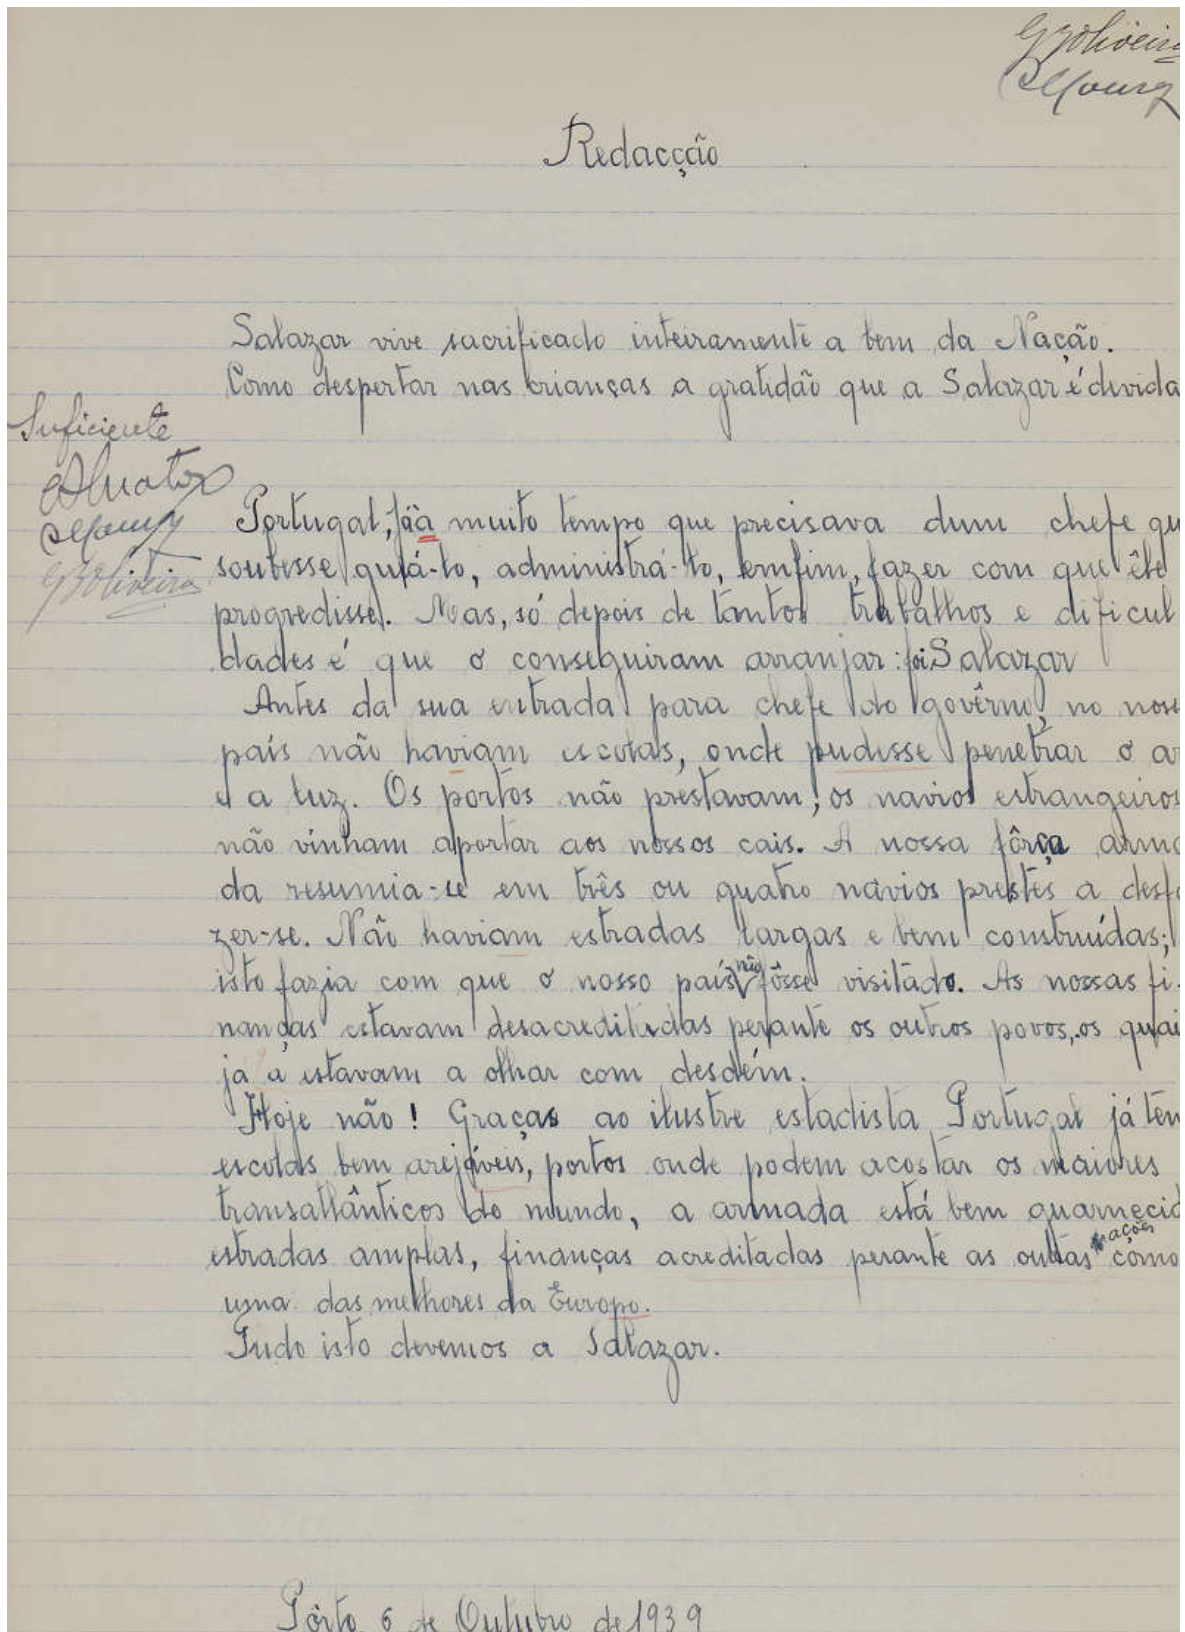 G B Oliveira
Redacção
Salazar vive sacrificado inteiramente a bem da Nação.
Como despertar nas crianças a gratidão que a Salazar é divida
Suficiente
G B Oliveira
Portugal, já a muito tempo que precisava dum chefe qu
soubesse guiá-lo, administrá-lo, emfim, fazer com que êle
progredisse. Mas, só depois de tantos trabalhos e dificul
dades é que o conseguiram arranjar: foi Salazar
Antes da sua entrada para chefe do govêrno, no noss
país não haviam escolas, onde pudesse penetrar o ar
e a luz. Os portos não prestavam; os navios estrangeiros
não vinham aportar aos nossos cais. A nossa fôrça arma
da resumia-se em três ou quatro navios prestes a desfa
zer-se. Não haviam estradas largas e bem construídas;
isto fazia com que o nosso país não fôsse visitado. As nossas fi-
nanças estavam desacreditadas perante os outros povos, os quai
já a estavam a olhar com desdém.
Hoje não! Graças ao ilustre estadista Portugal já tem
escolas bem arejáveis, portos onde podem acostar os maiores
transatlânticos do mundo, a armada está bem guarnecid
estradas amplas, finanças acreditadas perante as outras nações como
uma das melhores da Europa.
Tudo isto devemos a Salazar.
Pôrto 6 de Outubro de 1939